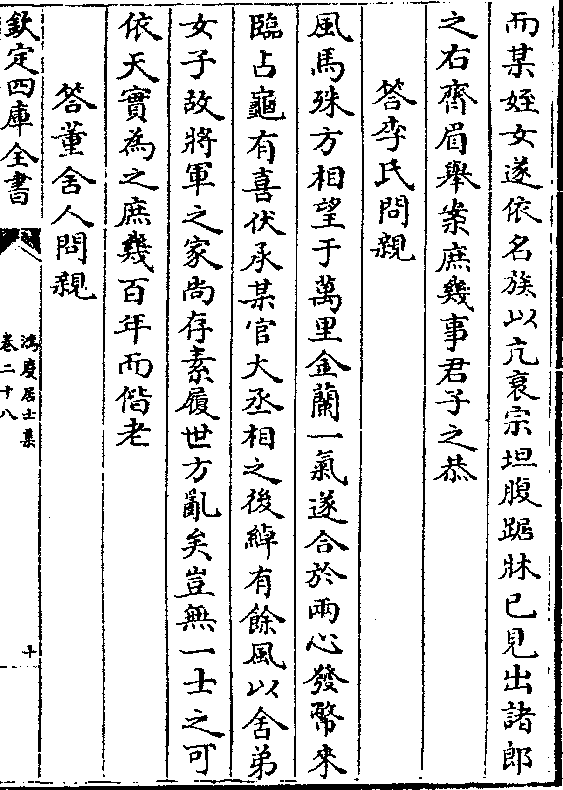 而某姪女遂依名族以亢衰宗坦腹踞牀已見出諸郎
之右齊眉舉案庶幾事君子之恭
答李氏問親
風馬殊方相望于萬里金蘭一氣遂合於兩心發幣來
臨占龜有喜伏承某官大丞相之後綽有餘風以舍弟
女子故將軍之家尚存素履世方亂矣豈無一士之可
依天實為之庶幾百年而偕老
答董舍人問親
欽定四庫全書
鴻慶居士集
卷二十八
十